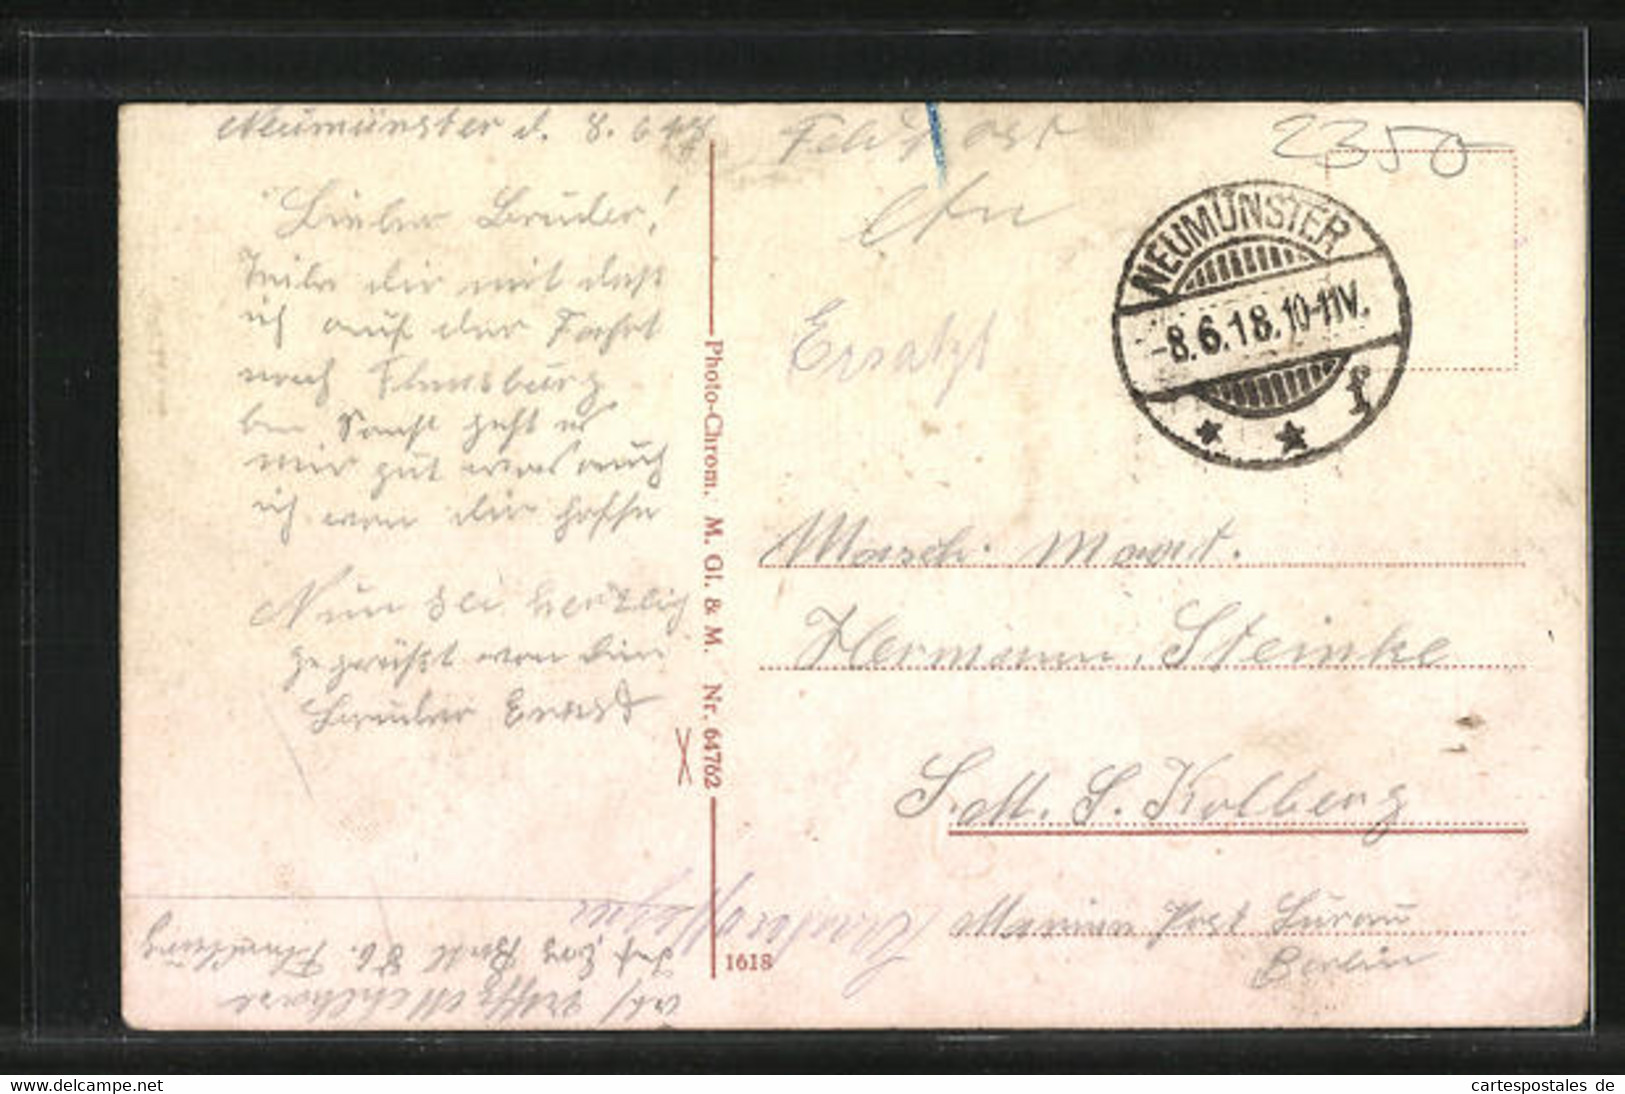 Neumünster d. 8. 6 18
Feldpost
2350
Lieber Bruder!
Teile dir mit daß
ich auf der Fahrt
nach Flensburg
bin Sonst geht es
mir gut was auch
ich von dir hoffe
Nun sei herzlich
gegrüßt von dein
Bruder Ernst
Ersatzt
NEUMÜNSTER
-8.6.18.10-11V.
* * f
Photo-Chrom. M. Gl. & M. Nr. 64762
Masch. Maat.
Hermann Steinke
S. M. S. Kolberg
Marine Post Büro
Berlin
1618
Abs.
Inf. Ers Batl 86. Flensburg
cartespostales.de